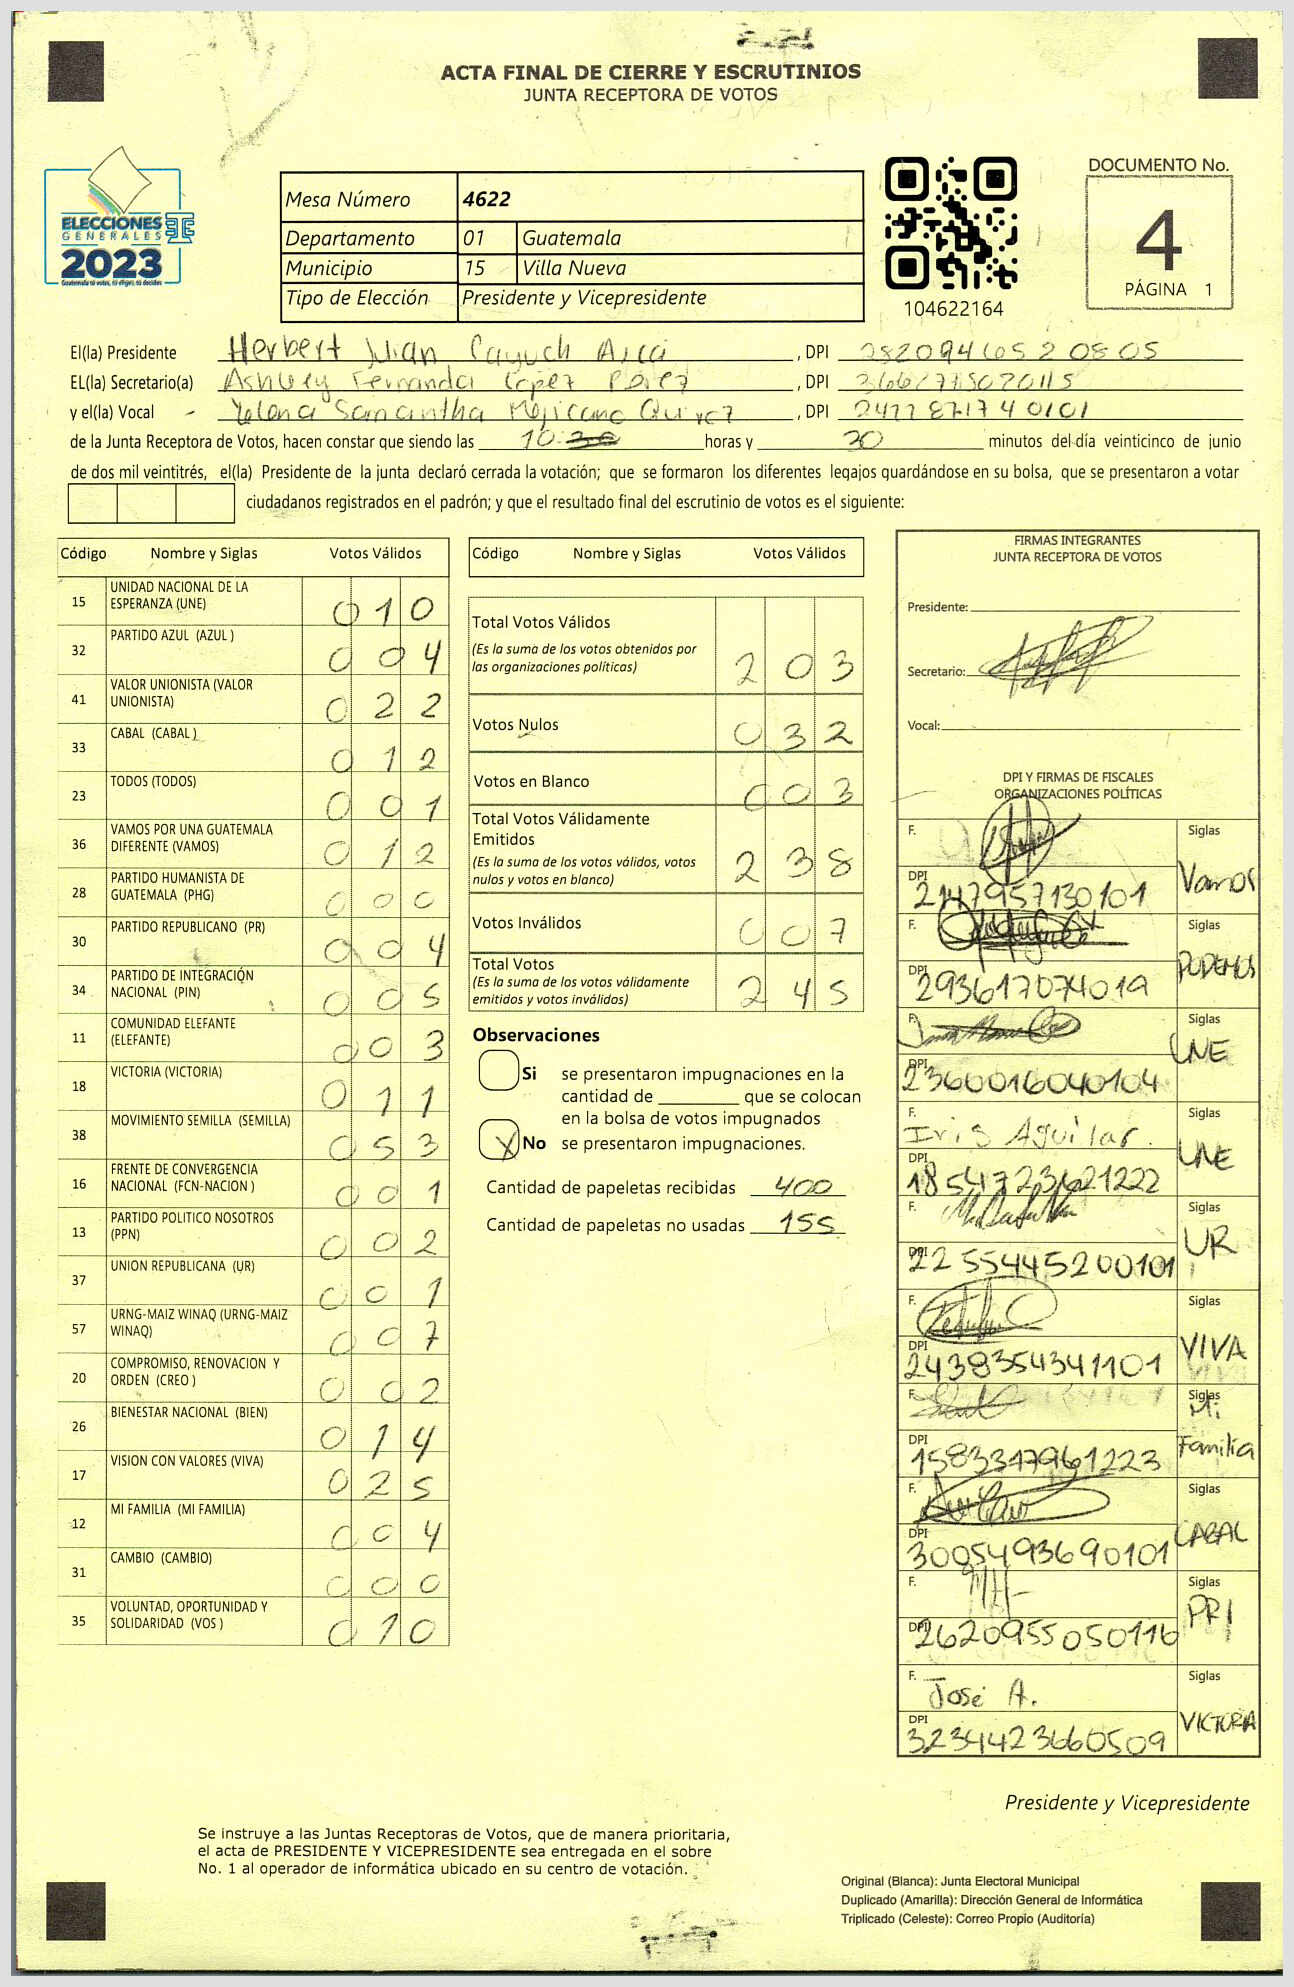 ACTA FINAL DE CIERRE Y ESCRUTINIOS
JUNTA RECEPTORA DE VOTOS
ELECCIONES
GENERALES
2023
Guatemala tú votas, tú eliges, tú decides
Mesa Número 4622
Departamento 01 Guatemala
Municipio 15 Villa Nueva
Tipo de Elección Presidente y Vicepresidente
104622164
DOCUMENTO No.
4
PÁGINA 1
El(la) Presidente Herbert , DPI
EL(la) Secretario(a) Ashley Fernanda López Pérez , DPI
y el(la) Vocal Yelena Samantha Mejicano , DPI
de la Junta Receptora de Votos, hacen constar que siendo las 10 horas y 30 minutos del día veinticinco de junio
de dos mil veintitrés, el(la) Presidente de la junta declaró cerrada la votación; que se formaron los diferentes legajos guardándose en su bolsa, que se presentaron a votar
ciudadanos registrados en el padrón; y que el resultado final del escrutinio de votos es el siguiente:
Código Nombre y Siglas Votos Válidos
15 UNIDAD NACIONAL DE LA ESPERANZA (UNE) 010
32 PARTIDO AZUL (AZUL ) 004
41 VALOR UNIONISTA (VALOR UNIONISTA) 022
33 CABAL (CABAL ) 012
23 TODOS (TODOS) 001
36 VAMOS POR UNA GUATEMALA DIFERENTE (VAMOS) 012
28 PARTIDO HUMANISTA DE GUATEMALA (PHG) 000
30 PARTIDO REPUBLICANO (PR) 004
34 PARTIDO DE INTEGRACIÓN NACIONAL (PIN) 005
11 COMUNIDAD ELEFANTE (ELEFANTE) 003
18 VICTORIA (VICTORIA) 011
38 MOVIMIENTO SEMILLA (SEMILLA) 053
16 FRENTE DE CONVERGENCIA NACIONAL (FCN-NACION ) 001
13 PARTIDO POLITICO NOSOTROS (PPN) 002
37 UNION REPUBLICANA (UR) 001
57 URNG-MAIZ WINAQ (URNG-MAIZ WINAQ) 007
20 COMPROMISO, RENOVACION Y ORDEN (CREO ) 002
26 BIENESTAR NACIONAL (BIEN) 014
17 VISION CON VALORES (VIVA) 025
12 MI FAMILIA (MI FAMILIA) 004
31 CAMBIO (CAMBIO) 000
35 VOLUNTAD, OPORTUNIDAD Y SOLIDARIDAD (VOS ) 010
Código Nombre y Siglas Votos Válidos
Total Votos Válidos 203
(Es la suma de los votos obtenidos por
las organizaciones políticas)
Votos Nulos 032
Votos en Blanco 003
Total Votos Válidamente
Emitidos 238
(Es la suma de los votos válidos, votos
nulos y votos en blanco)
Votos Inválidos 007
Total Votos 245
(Es la suma de los votos válidamente
emitidos y votos inválidos)
Observaciones
Si se presentaron impugnaciones en la
cantidad de que se colocan
en la bolsa de votos impugnados
X No se presentaron impugnaciones.
Cantidad de papeletas recibidas 400
Cantidad de papeletas no usadas 155
FIRMAS INTEGRANTES
JUNTA RECEPTORA DE VOTOS
Presidente:
Secretario:
Vocal:
DPI Y FIRMAS DE FISCALES
ORGANIZACIONES POLÍTICAS
F. Siglas
DPI 2147957130101 Vamos
F. Siglas
DPI 293617074019 PODEMOS
F. Siglas
DPI 2360016040104 UNE
F. Iris Aguilar. Siglas
DPI 1854723621222 UNE
F. Siglas
DPI 2255445200101 UR
F. Siglas
DPI 2438354341101 VIVA
F. Siglas
DPI 1583317961223 Mi Familia
F. Siglas
DPI 3005493690101 CABAL
F. Siglas
DPI 2620955050116 PRI
F. José A. Siglas
DPI 3234423660509 VICTORIA
Presidente y Vicepresidente
Se instruye a las Juntas Receptoras de Votos, que de manera prioritaria,
el acta de PRESIDENTE Y VICEPRESIDENTE sea entregada en el sobre
No. 1 al operador de informática ubicado en su centro de votación.
Original (Blanca): Junta Electoral Municipal
Duplicado (Amarilla): Dirección General de Informática
Triplicado (Celeste): Correo Propio (Auditoría)